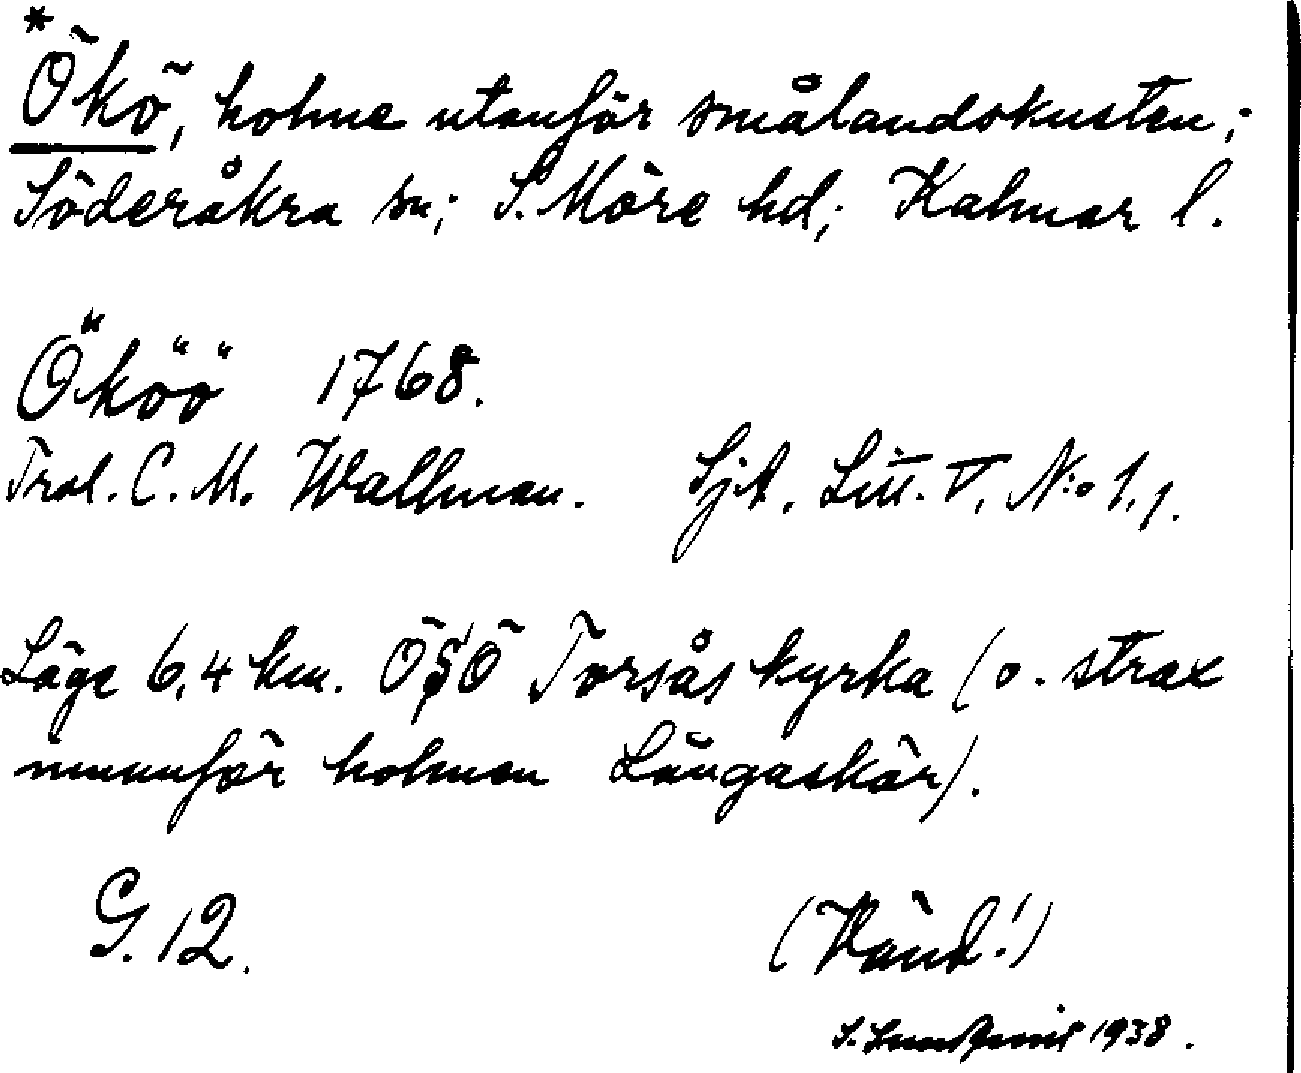 *
Ökö, holme utanför smålandskusten;
Söderåkra sn; S. Möre hd; Kalmar l.
Ököö 1768.
Trol. C. M. Wallman. SjA. Litt. V, N:o 1,1.
Läge 6,4 km. ÖSÖ Torsås kyrka (o. strax
innanför holmen Långaskär).
G. 12.
(Vänd!)
S. 1938.